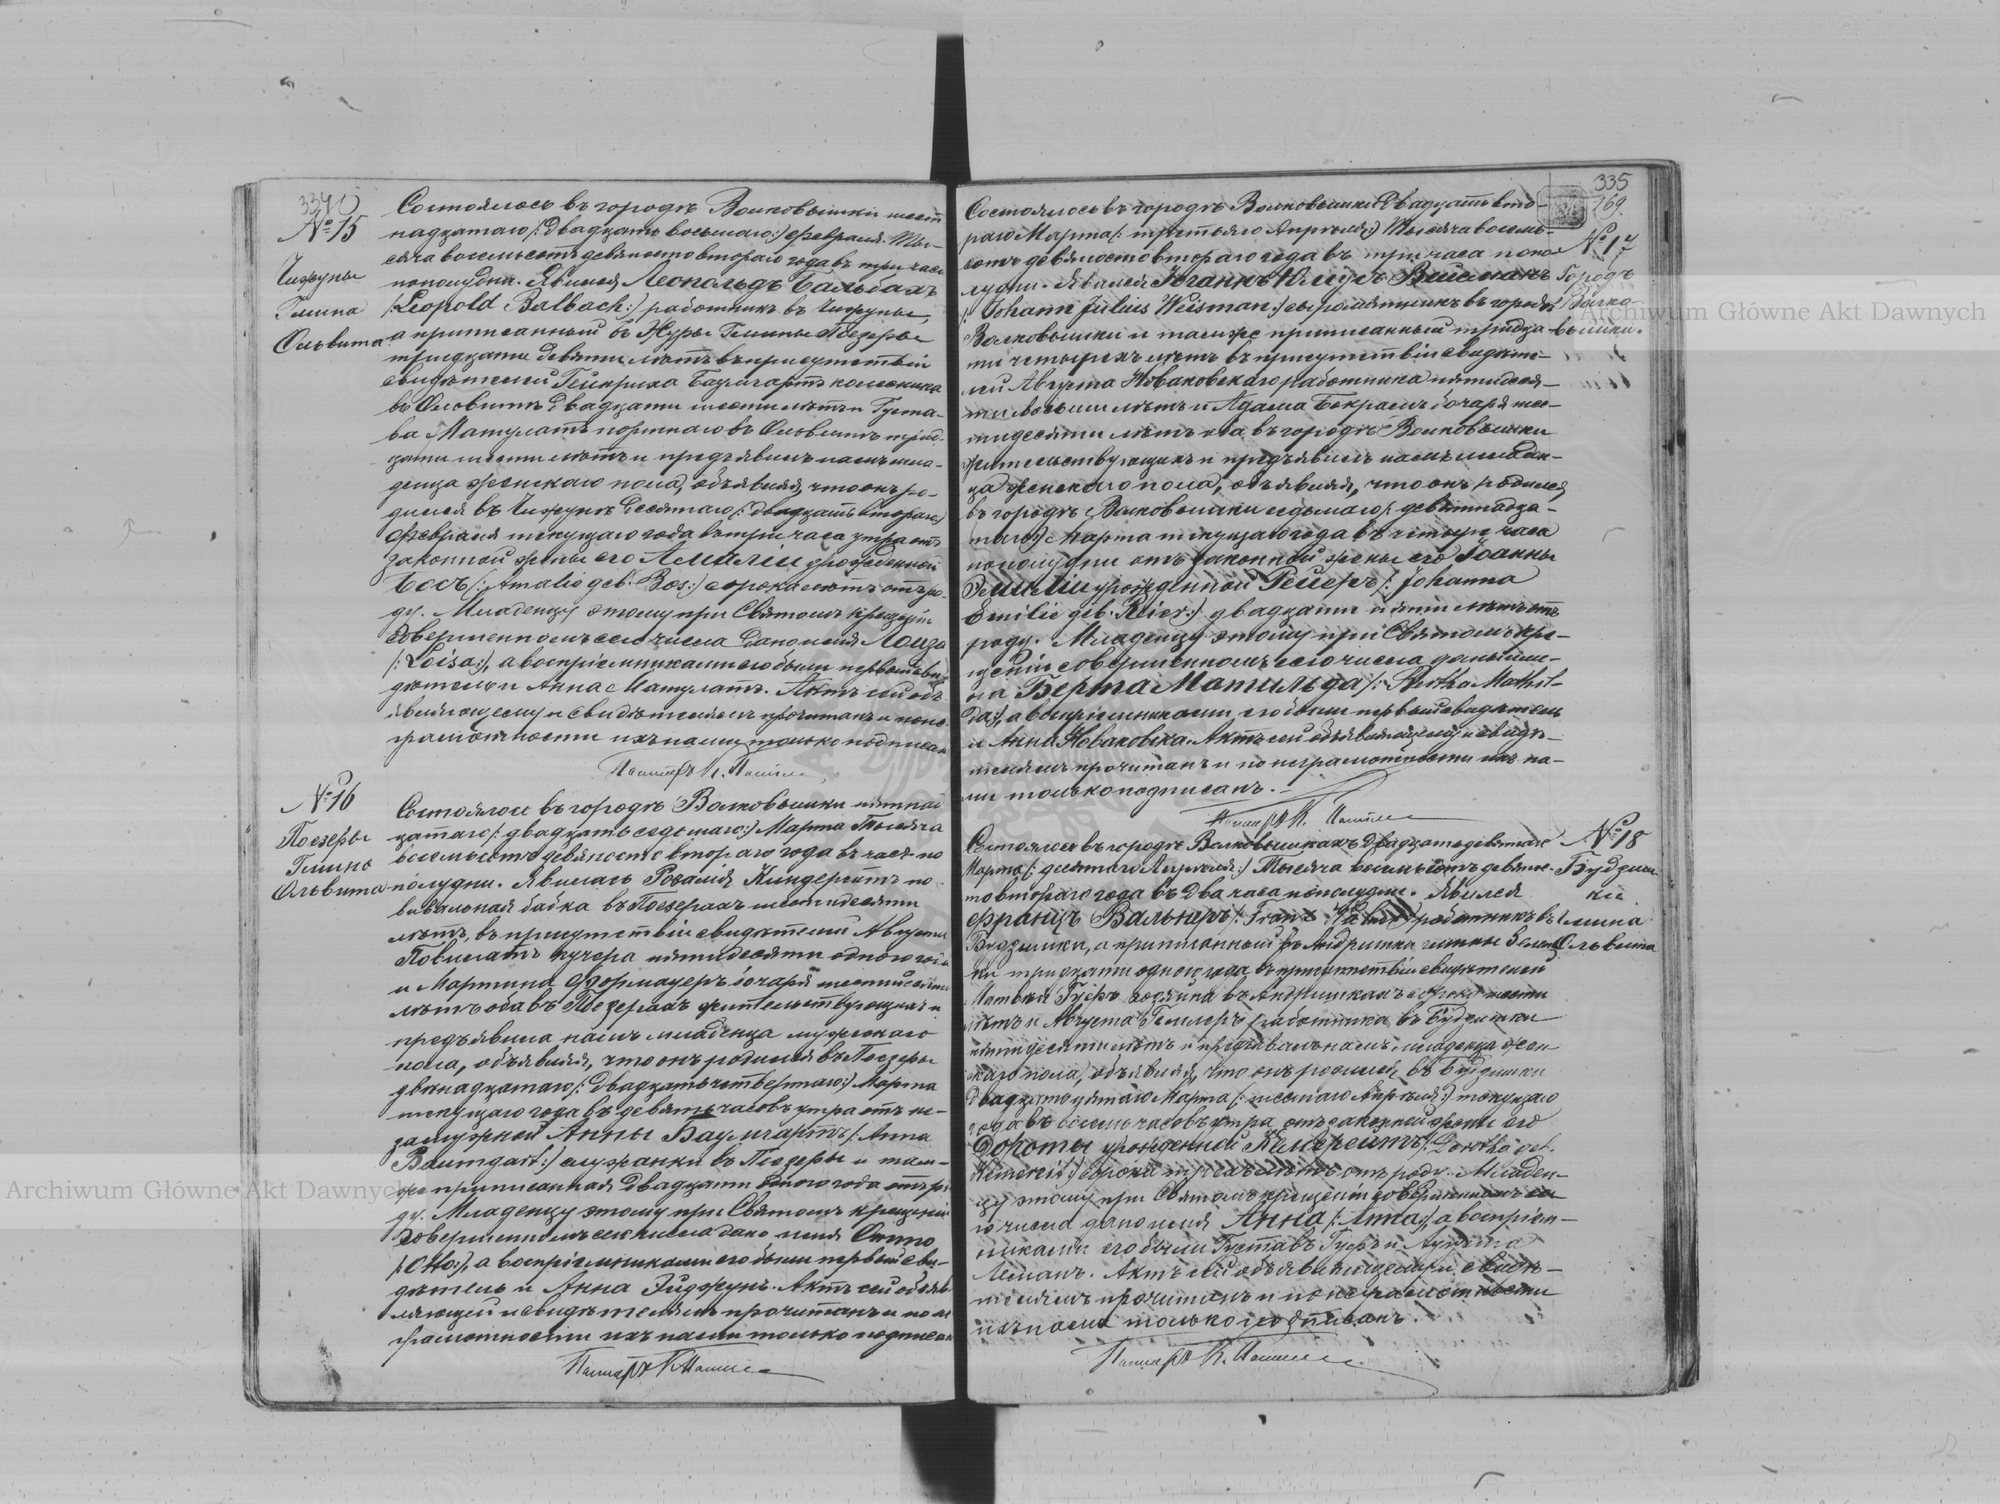 3340
№ 15
Чижуны
Гмина
Ольвита
Состоялось въ городѣ Волковышки шест
надцатаго /: двадцать восьмаго:/ Февраля. Ты-
сяча восемьсотъ девяносто втораго года въ три часа
пополудни. Явился Леопольдъ Бальбахъ
/: Leopold Balbach:/ работникъ въ Чижуны,
а приписанный въ Гмины Поезеры
тридцати девяти лѣтъ въ присутствіи
свидѣтелей Гейнриха Баумгартъ колесника
въ Ольвитѣ двадцати шести лѣтъ и Густа-
ва Матулатъ портнаго въ Ольвитѣ трид-
цати шести лѣтъ и предъявилъ намъ мла-
денца женскаго пола, объявляя, что онъ ро-
дился въ Чижунѣ десятаго /: двадцать втораго:/
Февраля текущаго года въ три часа утра отъ
законной жены его Амаліи урожденной
Босъ /: Amalie geb. Bos:/ сорока лѣтъ отъ ро-
ду. Младенцу этому при Святомъ крещеніи
совершенномъ сего числа дано имя Лоиза
/: Loisa:/, а воспріемниками его были первый сви-
дѣтель и Анна Матулатъ. Актъ сей объ
являющему и свидѣтелямъ прочитанъ и по не-
грамотности ихъ нами только подписан
Пасторъ К.
№ 16
Поезеры
Гмина
Ольвита
Состоялось въ городѣ Волковышки пятнад
цатаго /: двадцать седьмаго:/ Марта Тысяча
восемьсотъ девяносто втораго года въ часъ по
полудни. Явилась Розалія Киндеритъ по
вивальная бабка въ Поезерахъ шестидесяти
лѣтъ, въ присутствіи свидѣтелей Августа
Повилатъ кучера пятидесяти одного года
и Мартина Формауеръ бочаря шестидесяти
лѣтъ оба въ Поезерахъ жительствующихъ и
предъявила намъ младенца мужескаго
пола, объявляя, что онъ родился въ Поезеры
двенадцатаго /: двадцать четвертаго:/ Марта
текущаго года въ девять часовъ утра отъ не-
замужной Анны Баумгартъ /: Anna
Baumgart:/ служанки въ Поезеры и там-
же приписанная двадцати одного года отъ ро
ду. Младенцу этому при Святомъ крещеніи
совершенномъ сего числа дано имя Отто
/: Otto:/, а воспріемниками его были первый сви-
дѣтель и Анна Эйджунъ. Актъ сей объяв
ляющей и свидѣтелямъ прочитанъ и по не
грамотности ихъ нами только подписан
Пасторъ К.
335
169.
№ 17
Городъ
Волко-
вышки.
Состоялось въ городѣ Волковышки двадцать вто-
раго Марта /: третьяго Апрѣля:/ Тысяча восемь-
сотъ девяносто втораго года въ три часа попо-
лудни. Явился Іоганнъ Юлiусъ Вейсманъ
/: Johann Julius Weisman:/ сыромятникъ въ городѣ
Волковышки и тамже приписанный тридца-
ти четырехъ лѣтъ въ присутствіи свидѣте-
лей Августа Новаковскаго работника пятидеся-
ти восьми лѣтъ и Адама Бекрамъ бочаря шес-
тидесяти лѣтъ оба въ городѣ Волковышки
жительствующихъ и предъявилъ намъ младен-
ца женскаго пола, объявляя, что онъ родился
въ городѣ Волковышки седьмаго /: девятнадца-
таго:/ Марта текущаго года въ четыре часа
пополудни отъ законной жены его Іоанны
Эмиліи урожденной Рейеръ /: Johanna
Emilie geb. Reier:/ двадцати пяти лѣтъ отъ
роду. Младенцу этому при Святомъ кре-
щеніи совершенномъ сего числа даны име-
на Берта Матильда /: Bertha Mathil-
da:/, а воспріемниками его были первый свидѣтель
и Анна Новаковска. Актъ сей объявляющему и свидѣ-
телямъ прочитанъ и по неграмотности ихъ на-
ми только подписанъ.
Пасторъ К.
№ 18
Будзин
ки
Гмина
Ольвита
Состоялось въ городѣ Волковышкахъ двадцать девятаго
Марта /: десятаго Апрѣля:/ Тысяча восемьсотъ девянос-
то втораго года въ два часа пополудни. Явился
Францъ Вальнеръ /: Franz работникъ въ
Будзинки, а приписанный въ Андришки гмины Зелен
ки тридцати одного года, въ присутствіи свидѣтелей
Матвѣя Гузъ хозяина въ Андришкахъ сорока шести
лѣтъ и Августа Гемлеръ работника въ Будзинки
пятидесяти лѣтъ и предъявилъ намъ младенца жен
скаго пола, объявляя, что онъ родился въ Будзинки
двадцать пятаго Марта /: шестаго Апрѣля:/ текущаго
года въ восемь часовъ утра отъ законной жены его
Дороты урожденной /: Dorotha geb.
сорока трехъ лѣтъ отъ роду. Младен-
цу этому при Святомъ крещеніи совершенномъ се-
го числа дано имя Анна /: Anna:/, а воспріем-
никами его были Густавъ Гузъ и Августа
Леманъ. Актъ сей объявляющему и свидѣ-
телямъ прочитанъ и по неграмотности
ихъ нами только подписанъ.
Пасторъ К.
Archiwum Główne Akt Dawnych
Archiwum Główne Akt Dawnych